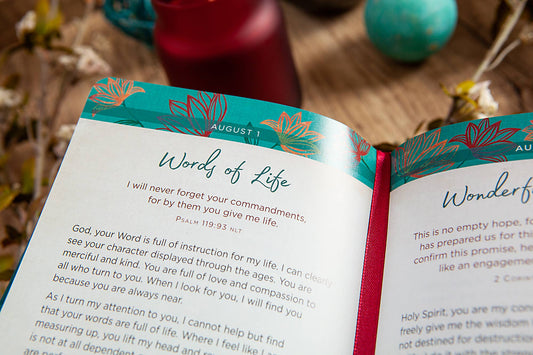 AUGUST 1
Words of Life
I will never forget your commandments,
for by them you give me life.
PSALM 119:93 NLT
God, your Word is full of instruction for my life. I can clearly
see your character displayed through the ages. You are
merciful and kind. You are full of love and compassion to
all who turn to you. When I look for you, I will find you
because you are always near.
As I turn my attention to you, I cannot help but find
that your words are full of life. Where I feel like I a
measuring up, you lift my head and r
is not at all dependent
AU
Wonderf
This is no empty hope, fo
has prepared us for thi
confirm this promise, he
like an engageme
2 CORIN
Holy Spirit, you are my con
freely give me the wisdom I
not destined for destruction